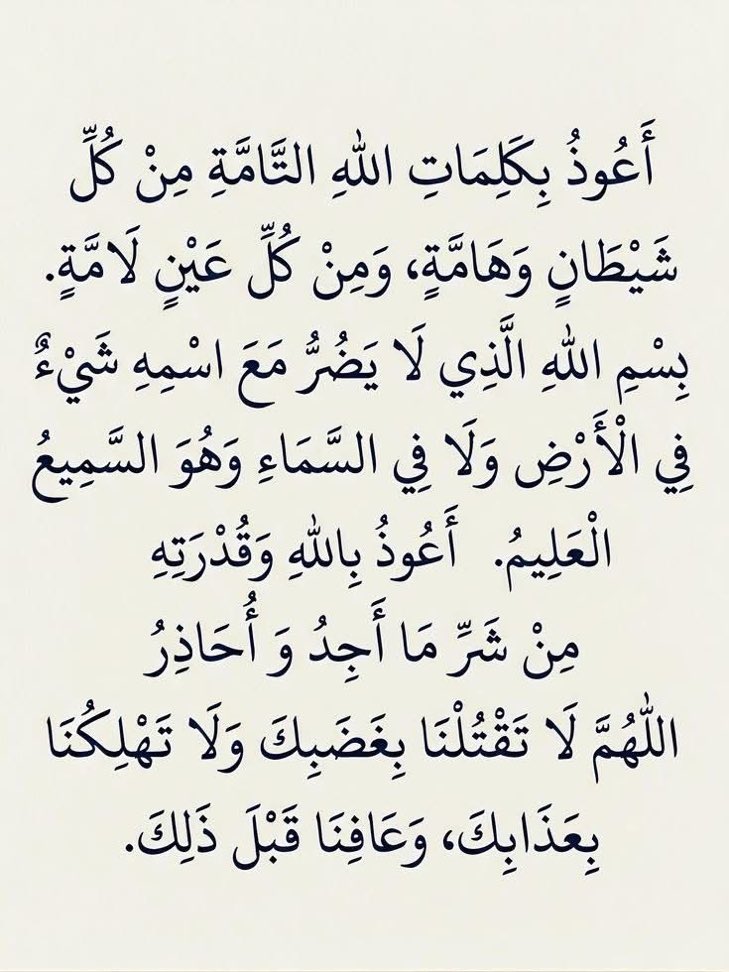 أَعُوذُ بِكَلِمَاتِ اللهِ التَّامَّةِ مِنْ كُلِّ
شَيْطَانٍ وَهَامَّةٍ، وَمِنْ كُلِّ عَيْنٍ لَامَّةٍ.
بِسْمِ اللهِ الَّذِي لَا يَضُرُّ مَعَ اسْمِهِ شَيْءٌ
فِي الْأَرْضِ وَلَا فِي السَّمَاءِ وَهُوَ السَّمِيعُ
الْعَلِيمُ. أَعُوذُ بِاللهِ وَقُدْرَتِهِ
مِنْ شَرِّ مَا أَجِدُ وَ أُحَاذِرُ
اللّٰهُمَّ لَا تَقْتُلْنَا بِغَضَبِكَ وَلَا تَهْلِكُنَا
بِعَذَابِكَ، وَعَافِنَا قَبْلَ ذَلِكَ.